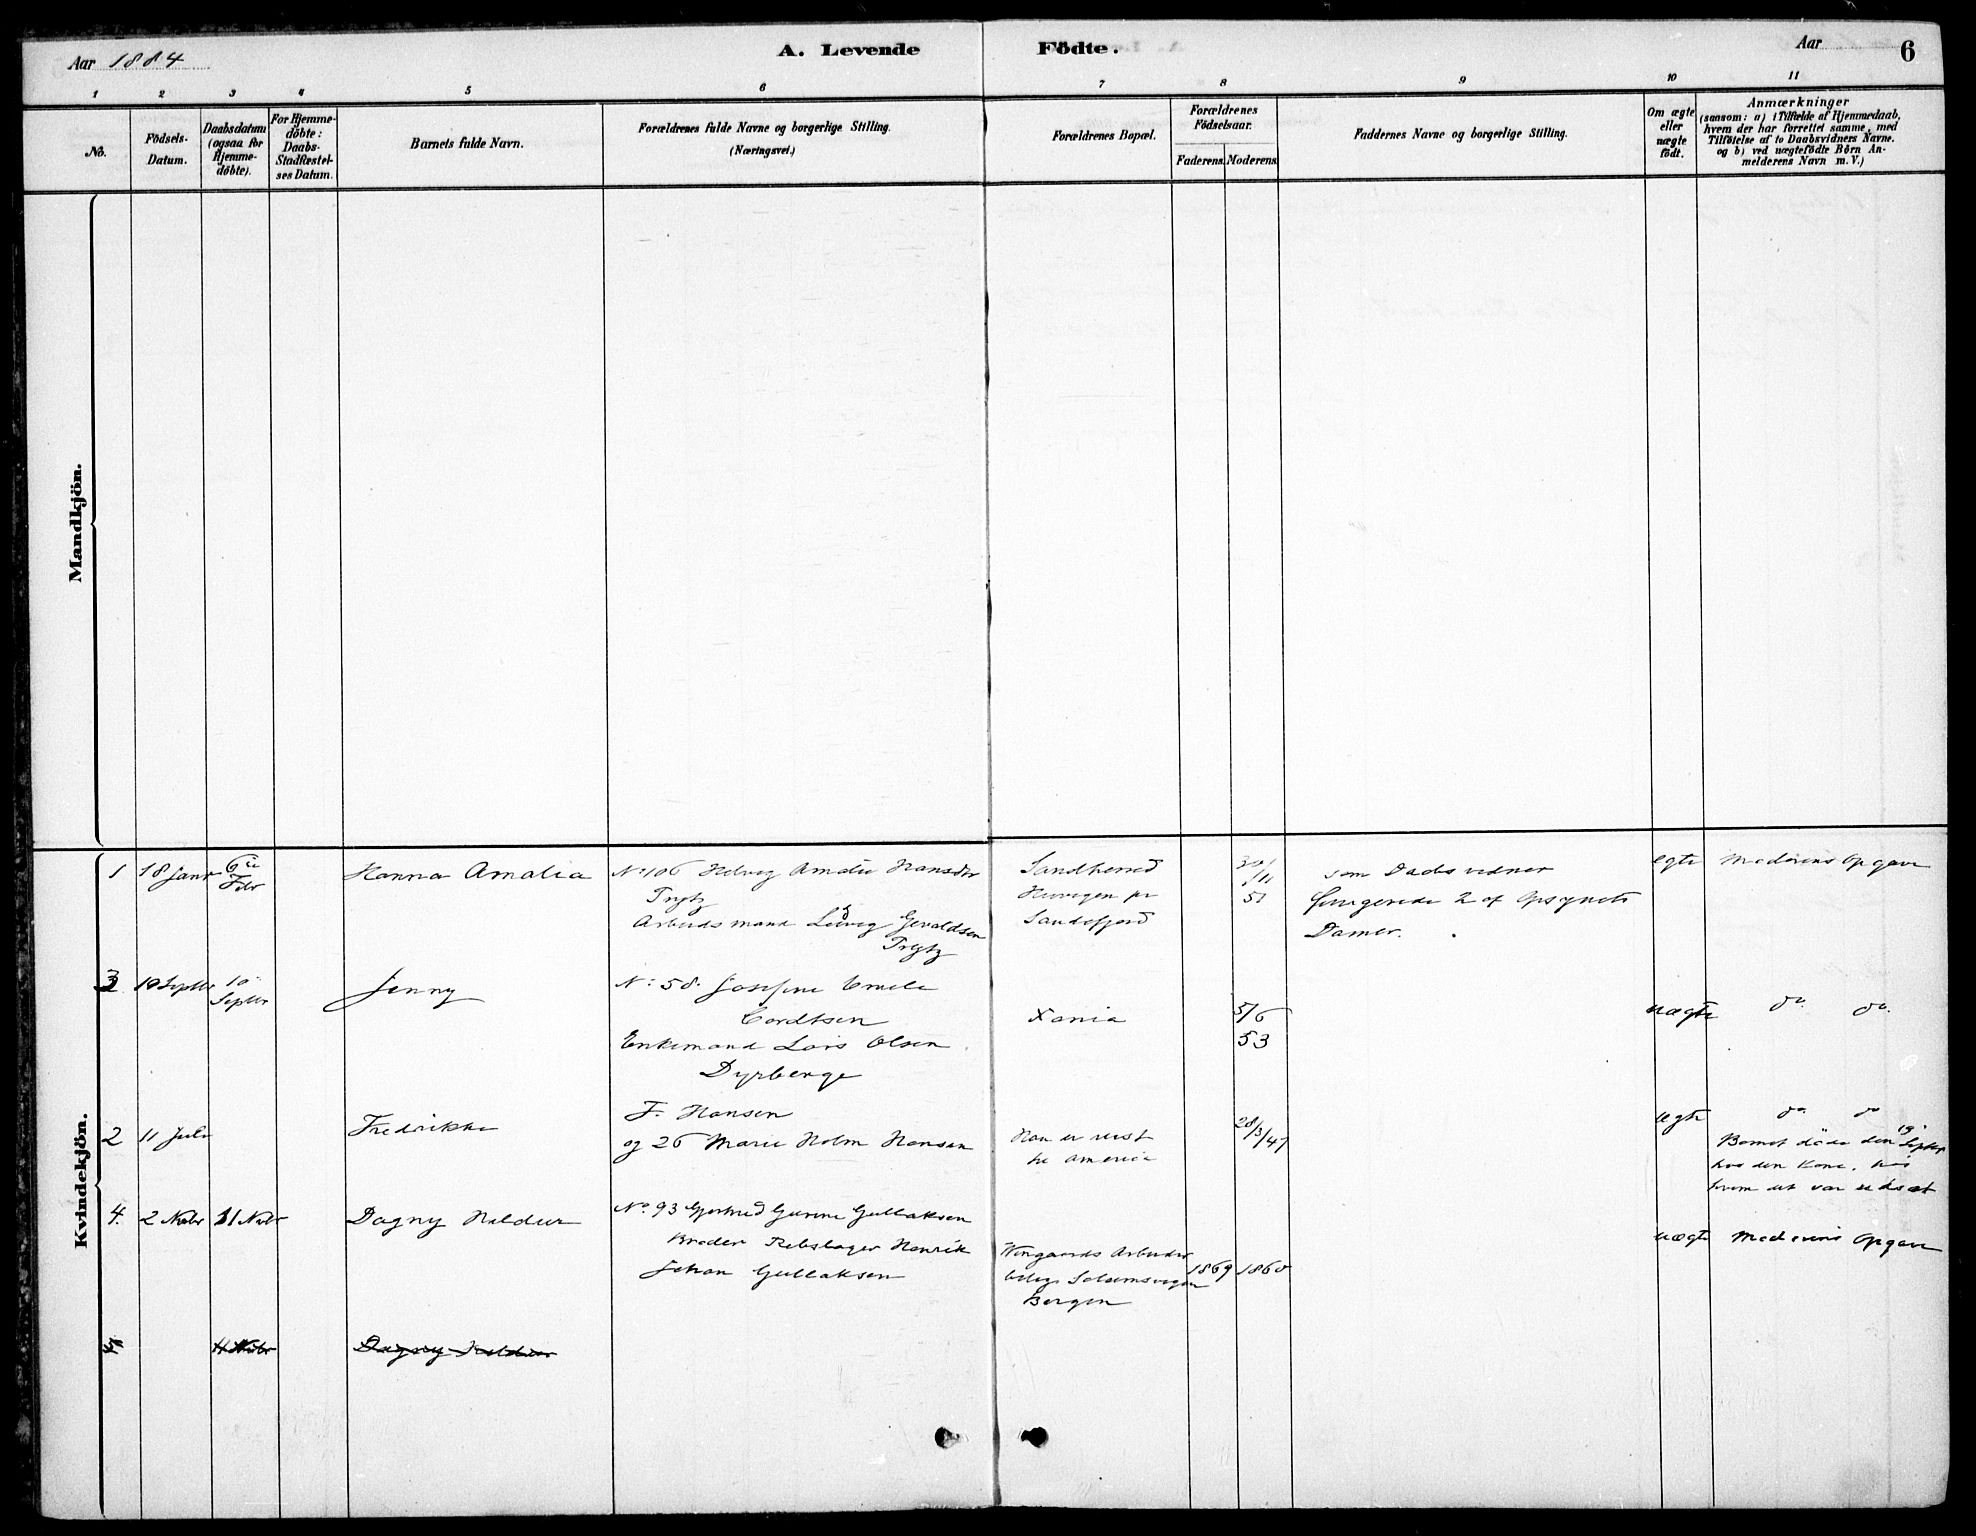 Aar 1884
A. Levende Födte.
Aar
6
1 2 3 4 5 6 7 8 9 10 11
No.
Födsels-
Datum.
Daabsdatum
(ogsaa for
Hjemme-
döbte).
For Hjemme-
döbte:
Daabs-
Stadfæstel-
ses Datum.
Barnets fulde Navn.
Forældrenes fulde Navne og borgerlige Stilling.
(Næringsvei.)
Forældrenes Bopæl.
Forældrenes
Födselsaar.
Faderens. Moderens.
Faddernes Navne og borgerlige Stilling.
Om ægte
eller
uægte
födt.
Anmærkninger
(saasom: a) i Tilfælde af Hjemmedaab,
hvem der har forrettet samme, med
Tilföielse af to Daabsvidners Navne.
og b) ved uægtefödte Börn An-
melderens Navn m. V.)
Mandkjön.
Kvindekjön.
1
18 Janr
6te
Febr
Hanna Amalia
No 106 Helvig Amalie Hansdtr
Trytz
Arbeidsmand Ludvig Gevaldsen
Trytz
Sandherred
pr
Sandefjord
51
som Daabsvidner
fungerede 2 af Opsynets
Damer.
egte
Moderens Opgave
3
10 Septbr
10
Septbr
Jenny
No 58. Josefine Emelie
Cordtsen
Enkemand Lars Olsen
Dyrberge
Xania
5/6
53
uægte
do. do.
2
11 Juli
Fredrikke
F. Hansen
og 26 Marie Holm Hansen
Han er reist
til America
28/3/47
egte
do do
Barnet döde den 19 Septbr
hos den Kone, hos
hvem det var udsat
4.
2 Nobr
11 Nobr
Dagny Hildur
No. 93 Gjertrud Gurine Gullaksen
Broder Rebslager Henrik
Johan Gullaksen
Arbeider
bolig Solemsvigen
Bergen
1869 1860
uægte
Moderens Opgave
4
11 Nobr
Dagny Hildur